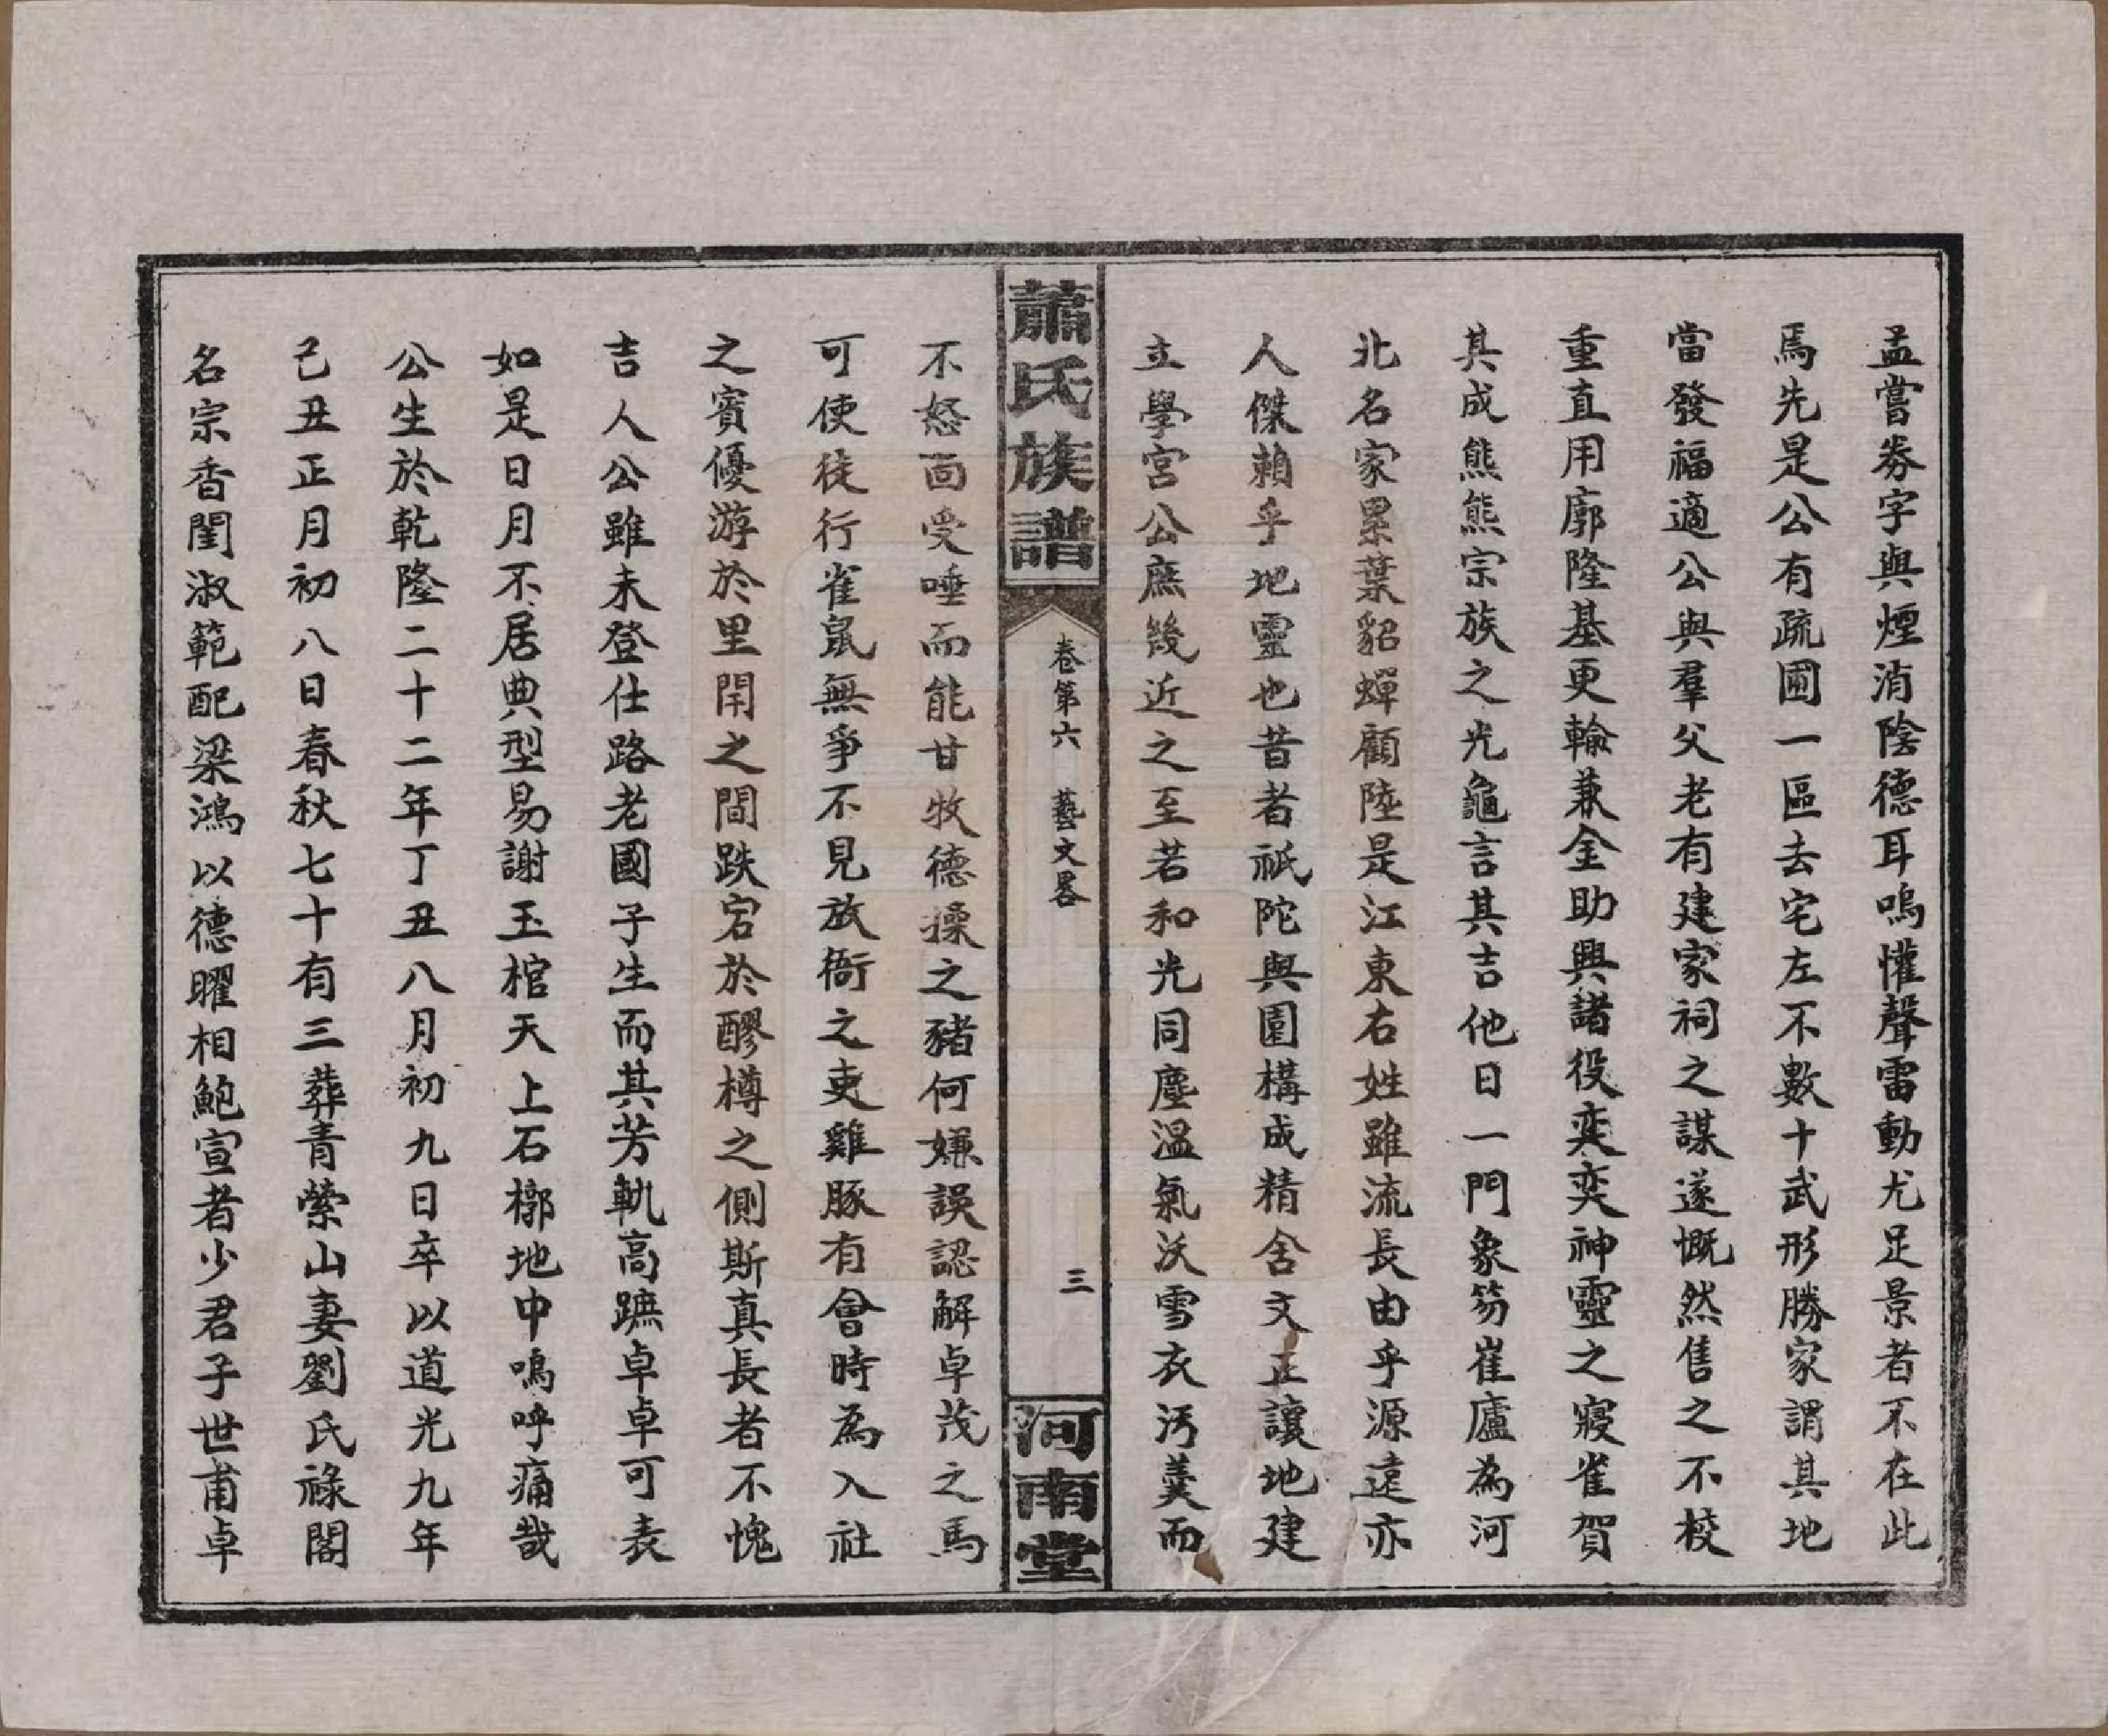 孟嘗券字與煙消陰德耳鳴懽聲雷動尤足景者不在此
焉先是公有疏圃一區去宅左不數十武形勝家謂其地
當發福適公與羣父老有建家祠之謀遂慨然售之不校
重直用廓隆基更輸兼金助興諸役奕奕神靈之寢雀賀
其成熊熊宗族之光龜言其吉他日一門象笏崔廬為河
北名家累葉貂蟬顧陸是江東右姓雖流長由乎源遠亦
人傑賴乎地靈也昔者祇陀與園構成精舍文正讓地建
立學宮公庶幾近之至若和光同塵溫氣沃雪衣汚羹而
蕭氏族譜
卷第六 藝文畧
三
河南堂
不怒面受唾而能甘牧德操之豬何嫌誤認解卓茂之馬
可使徒行雀鼠無爭不見放衙之吏雞豚有會時為入社
之賓優游於里閈之間跌宕於醪樽之側斯真長者不愧
吉人公雖未登仕路老國子生而其芳軌高蹠卓卓可表
如是日月不居典型易謝玉棺天上石槨地中嗚呼痛哉
公生於乾隆二十二年丁丑八月初九日卒以道光九年
己丑正月初八日春秋七十有三葬青縈山妻劉氏祿閣
名宗香閨淑範配梁鴻以德曜相鮑宣者少君子世甫卓